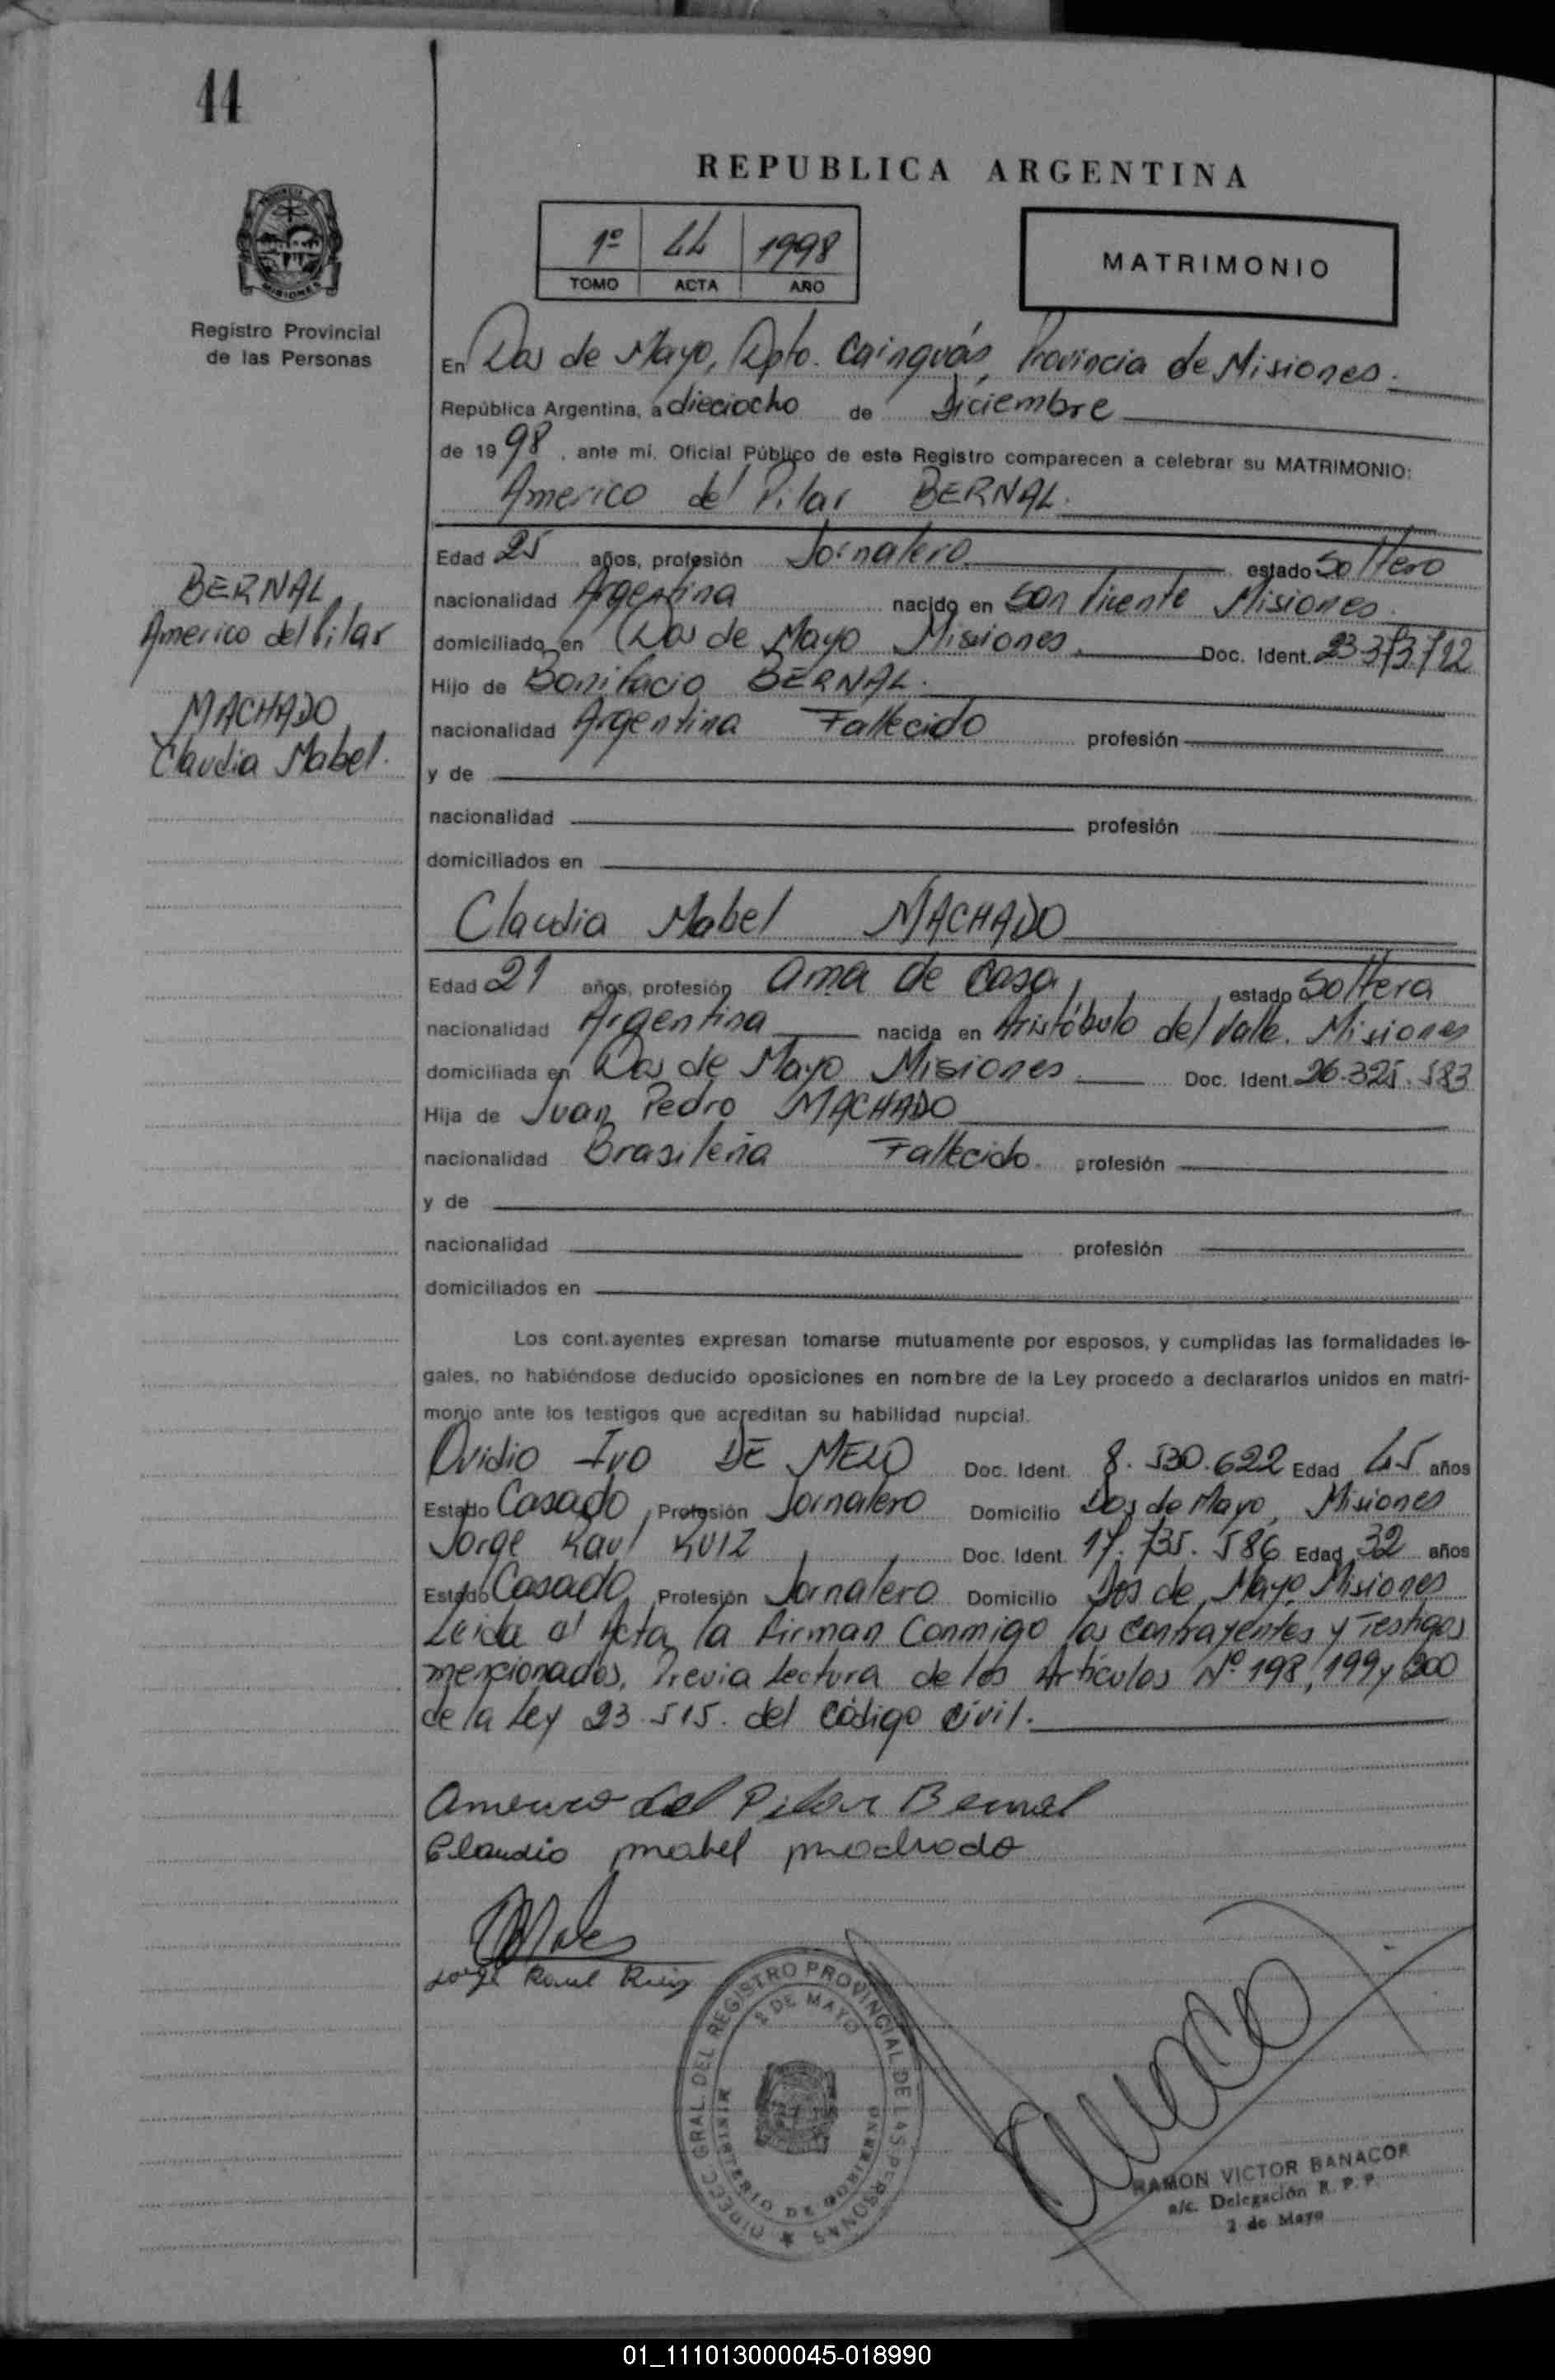 44
REPUBLICA ARGENTINA
1º 44 1998
TOMO ACTA AÑO
MATRIMONIO
PROVINCIA
MISIONES
Registro Provincial
de las Personas
En Dos de Mayo, Dpto. Cainguás, Provincia de Misiones.
República Argentina, a dieciocho de Diciembre
de 19 98, ante mí, Oficial Público de este Registro comparecen a celebrar su MATRIMONIO:
Americo del Pilar BERNAL.
Edad 25 años, profesión Jornalero. estado Soltero
BERNAL,
nacionalidad Argentina nacido en San Vicente Misiones.
Americo del Pilar
domiciliado en Dos de Mayo Misiones. Doc. Ident.
Hijo de Bonifacio BERNAL.
MACHADO,
nacionalidad Argentina Fallecido profesión
Claudia Mabel.
y de
nacionalidad profesión
domiciliados en
Claudia Mabel MACHADO
Edad 21 años, profesión ama de casa, estado Soltera
nacionalidad Argentina nacida en Aristóbulo del Valle. Misiones
domiciliada en Dos de Mayo Misiones Doc. Ident. 26.325.583
Hija de Juan Pedro MACHADO
nacionalidad Brasileña Fallecido. profesión
y de
nacionalidad profesión
domiciliados en
Los cont.ayentes expresan tomarse mutuamente por esposos, y cumplidas las formalidades le-
gales, no habiéndose deducido oposiciones en nombre de la Ley procedo a declararlos unidos en matri-
monio ante los testigos que acreditan su habilidad nupcial.
Ovidio Ivo DE MELO Doc. Ident. 8.530.622 Edad 45 años
Estado Casado, Profesión Jornalero Domicilio Dos de Mayo, Misiones
Jorge Raul RUIZ Doc. Ident. 17.735.586 Edad 32 años
Estado Casado, Profesión Jornalero Domicilio Dos de Mayo, Misiones
Leida el Acta, la firman Conmigo los contrayentes y Testigos
mencionados. Previa Lectura de los Artículos Nº 198, 199 y 200
de la Ley 23.515. del Código Civil.
Americo del Pilar Bernal
Claudia mabel machado
Jorge Raul Ruiz
DIRECC GRAL. DEL REGISTRO PROVINCIAL DE LAS PERSONAS
2 DE MAYO
MINISTERIO DE GOBIERNO
RAMON VICTOR BANACOR
a/c. Delegación R. P. P.
2 de Mayo
01_111013000045-018990